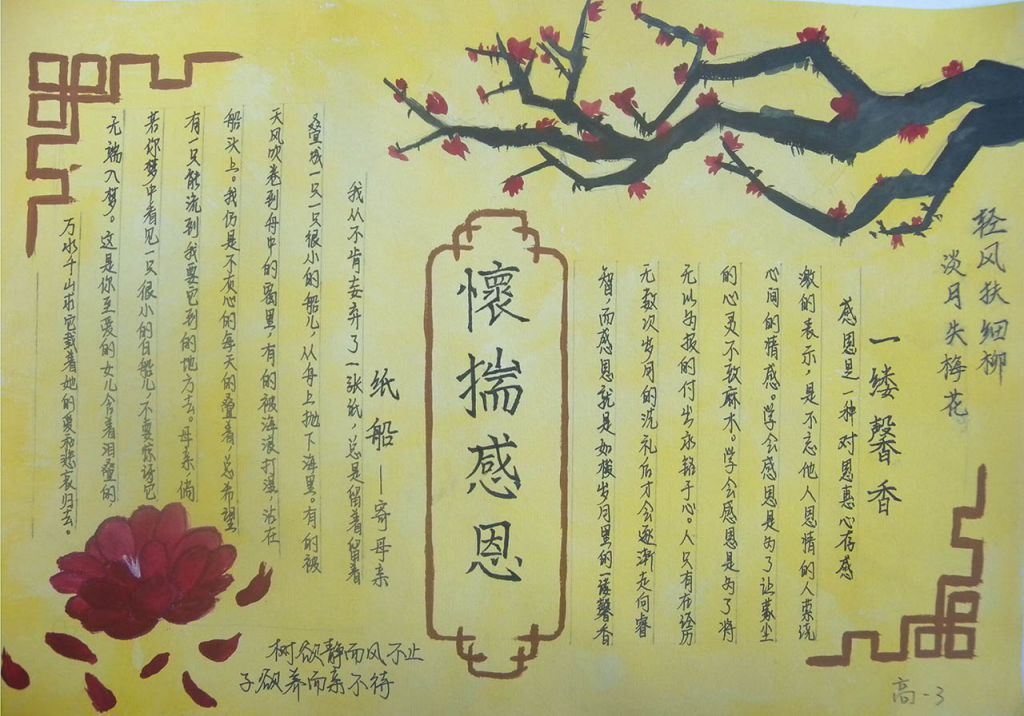 轻风扶细柳
淡月失梅花
一缕馨香
感恩是一种对恩惠心存感
激的表示，是不忘他人恩情的人萦绕
心间的情感。学会感恩是为了让蒙尘
的心灵不致麻木。学会感恩是为了将
无以为报的付出永铭于心。人只有在经历
无数次岁月的洗礼后才会逐渐走向睿
智，而感恩就是如横岁月里的一缕馨香
懷揣感恩
纸船——寄母亲
我从不肯妄弃了一张纸，总是留着留着
叠成一只一只很小的船儿，从舟上抛下海里。有的被
天风吹卷到舟中的窗里，有的被海浪打湿，沾在
船头上。我仍是不灰心的每天的叠着，总希望
有一只能流到我要它到的地方去。母亲，倘
若你梦中看见一只很小的白船儿，不要惊讶它
无端入梦。这是你至爱的女儿含着泪叠的，
万水千山求它载着她的爱和悲哀归去。
树欲静而风不止
子欲养而亲不待
高-3